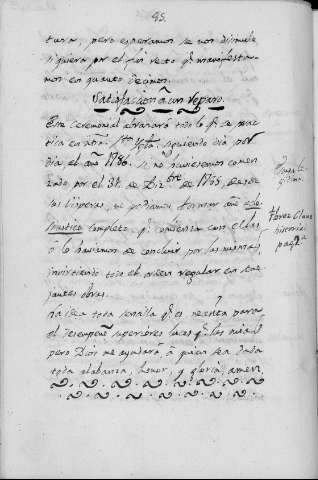 95.
tura, pero esperamos se nos disimule
siquiera por el fin recto q.e manifesta-
mos en quanto decimos.
Satisfacion à un reparo.
Este ceremonial abrazará todo lo q.e se prac-
tica en siguiendo dia por
dia el año 1786. Si no huviesemos comen
zado por el 31 de Diz.bre de 1785 desde
las visperas, no podiamos formar año
completo, p.s comienza con ellas
ó lo haviamos de concluir por las mismas,
invirtiendo todo el orden regular en
jantes obras.
La idea toda sencilla q.e es necesita para
el superiores luces q.e las mias
pero Dios me ayudará, à quien sea dada
toda alabanza, honor, y gloria, amen.
Florez Clave
historial
pag.